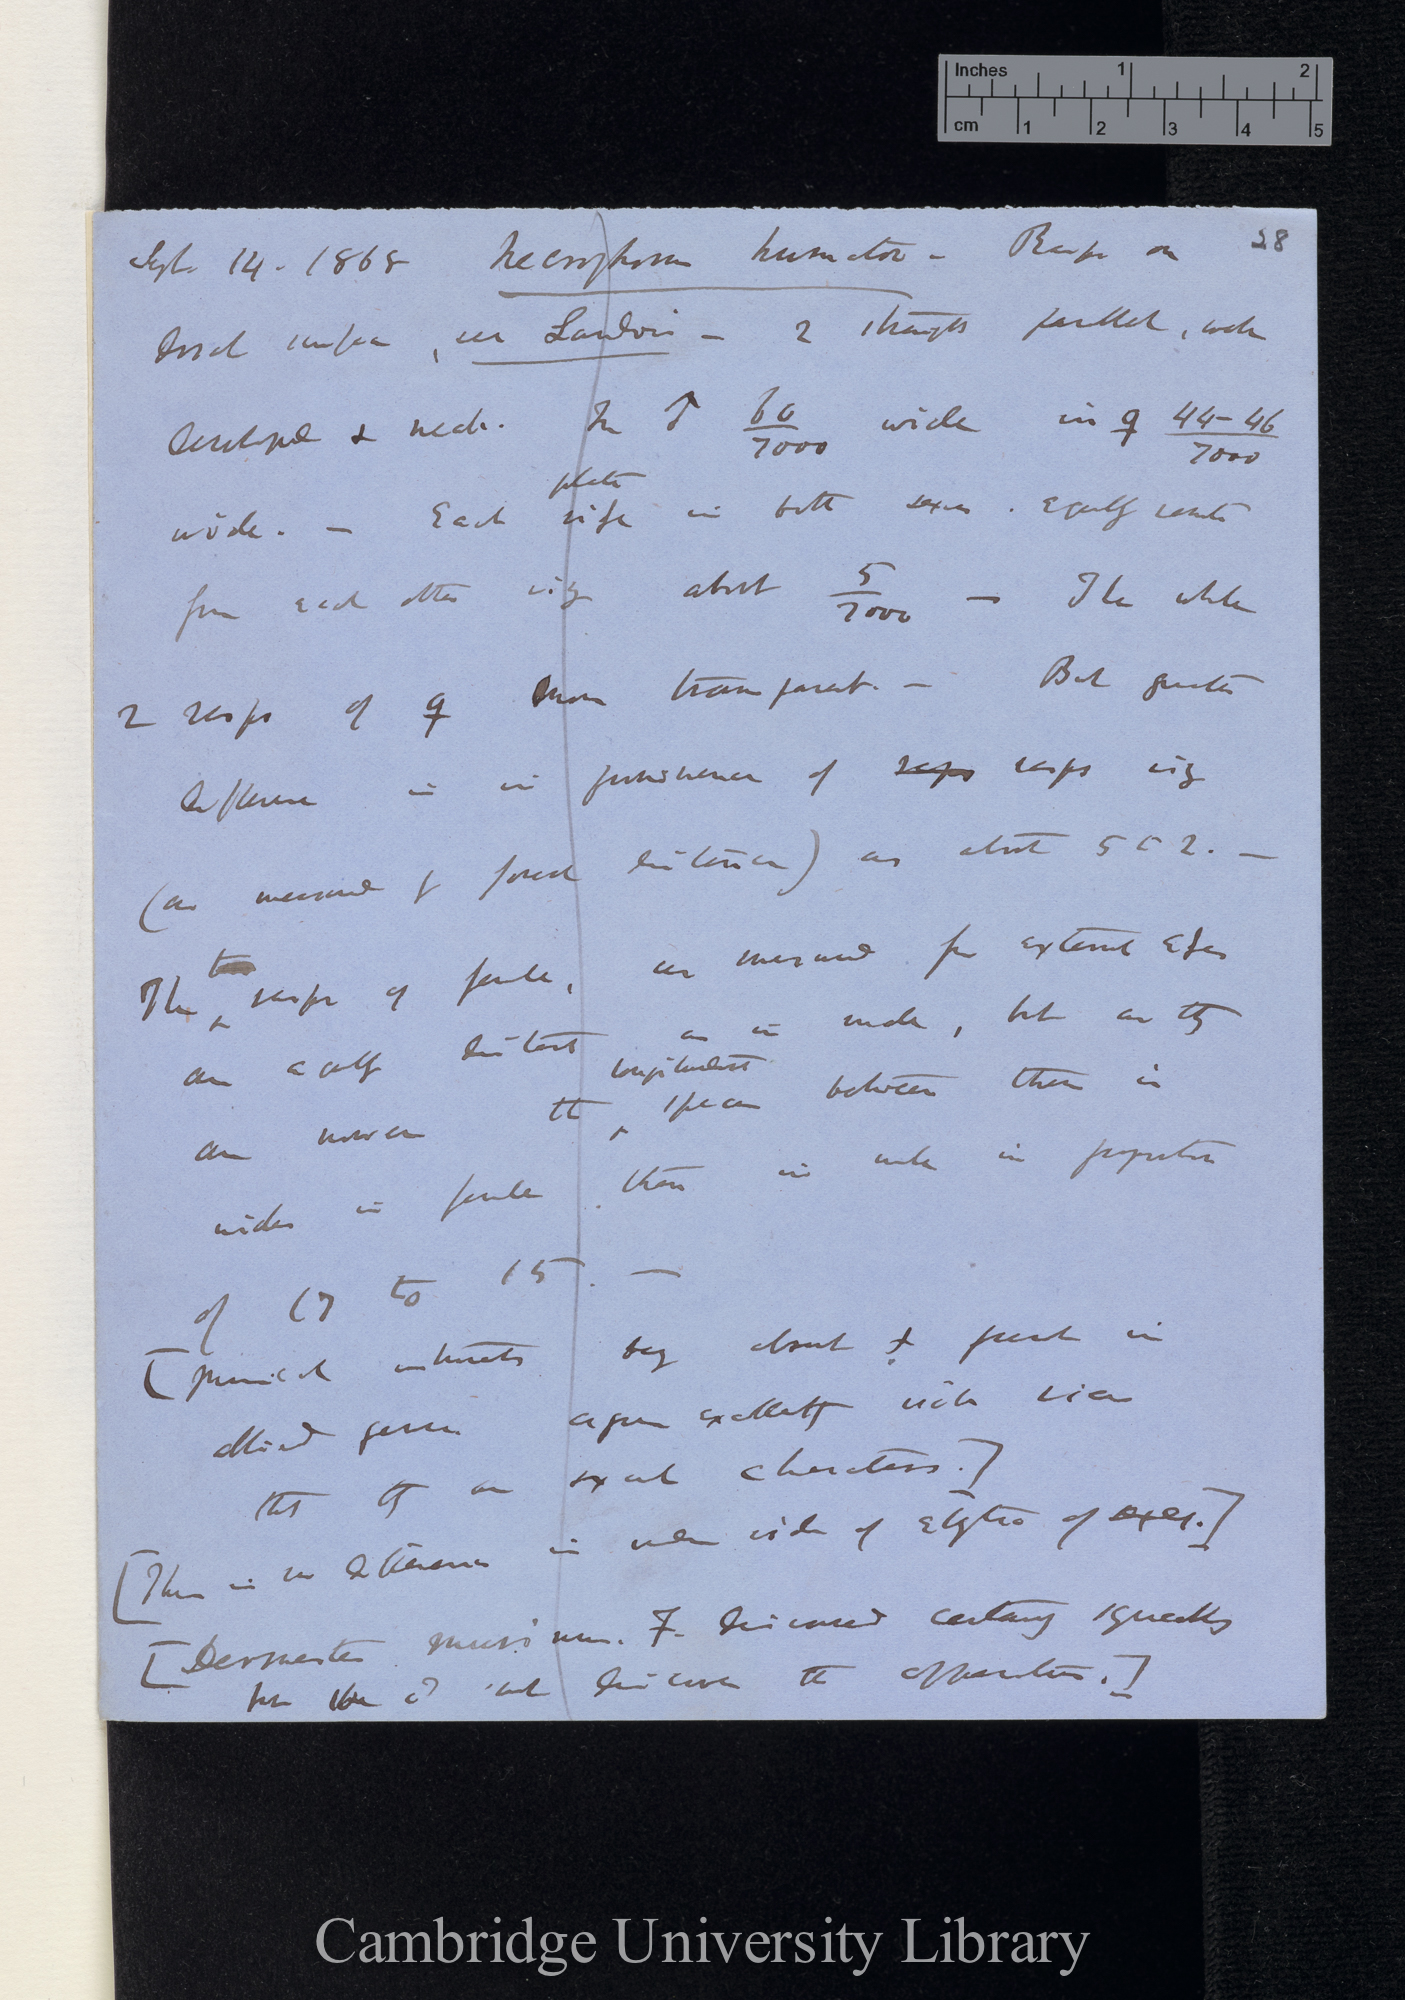 Inches 1 2
cm 1 2 3 4 5
28
Sept 14. 1868 Necrophorus humator – Rasps on
dorsal surface, see Landois – 2 straight parallel, well
developed & neat. In ♂ 60/7000 wide in ♀ 44–46/7000
plate
wide. – Each ridge in both sexes . equally remote
from each other viz about 5/7000 – The whole
2 rasps of ♀ more transparent. – But greatest
difference is in prominence of rasps rasps viz
(as measured by focal distance) as about 5 to 2. –
two
The rasps of female, as measured from external edges
are equally distant as in male, but as they
longitudinal
are narrower the space between them is
wider in female than in male in proportion
of 17 to 15. –
[ being absent & present in
allied genera agrees excellently with view
that they are sexual characters.]
[There is no difference in under side of elytra of sexes.]
[Dermestes murinus. F. discovered certainly
but cd not discover the apparatus.]
Cambridge University Library